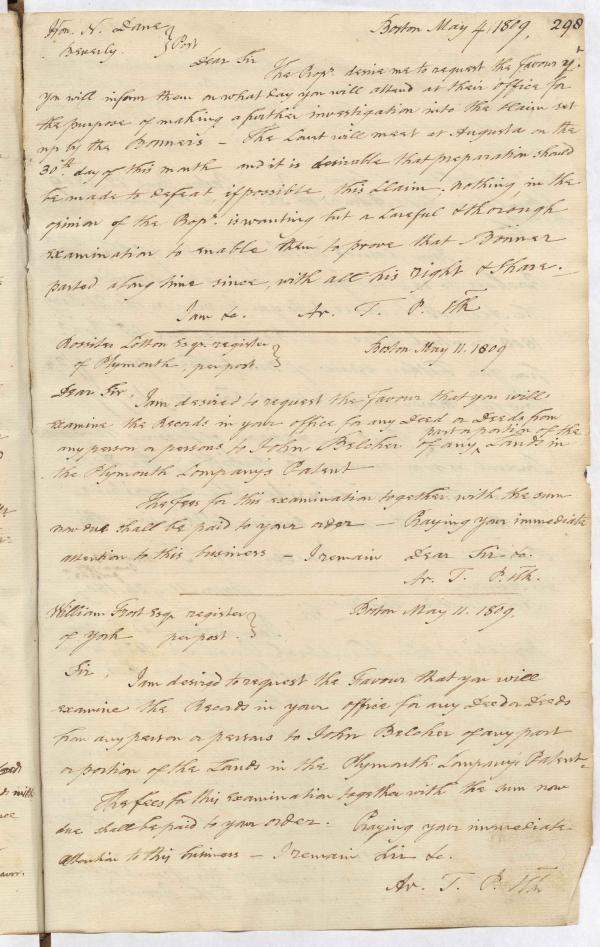 Hon. N. Dane } Boston May 4. 1809, 298
Beverly. } Post
Dear Sir
The Propr. desire me to request the favour yt.
you will inform them on what day you will attend at their office for
the purpose of making a further investigation into the claim set
up by the Bonners – The Court will meet at Augusta on the
30th. day of this month and it is desirable that preparation should
be made to defeat if possible, this claim. nothing in the
opinion of the Propr. is wanting but a careful & thorough
examination to enable them to prove that Bonner
parted a long time since, with all his right & share.
I am &c. Ar. T. P.
Rossiter Cotton Esqr. register } Boston May 11. 1809
of Plymouth, per post. }
Dear Sir. I am desired to request the favour that you will
examine the Records in your office for any Deed or Deeds from
any person or persons to John Belcher of any part or portion of the Lands in
the Plymouth Companys Patent
The fees for this examination together with the sum
now due shall be paid to your order – Praying your immediate
attention to this business – I remain Dear Sir &c.
Ar. T. P.
William Frost Esqr. register } Boston May 11. 1809.
of York per post. }
Sir. I am desired to request the Favour that you will
examine the Records in your office for any Deed or Deeds
from any person or persons to John Belcher of any part
or portion of the Lands in the Plymouth Company's Patent –
The fees for this examination together with the sum now
due shall be paid to your order. Praying your immediate
attention to this business – I remain Sir &c.
Ar. T. P.